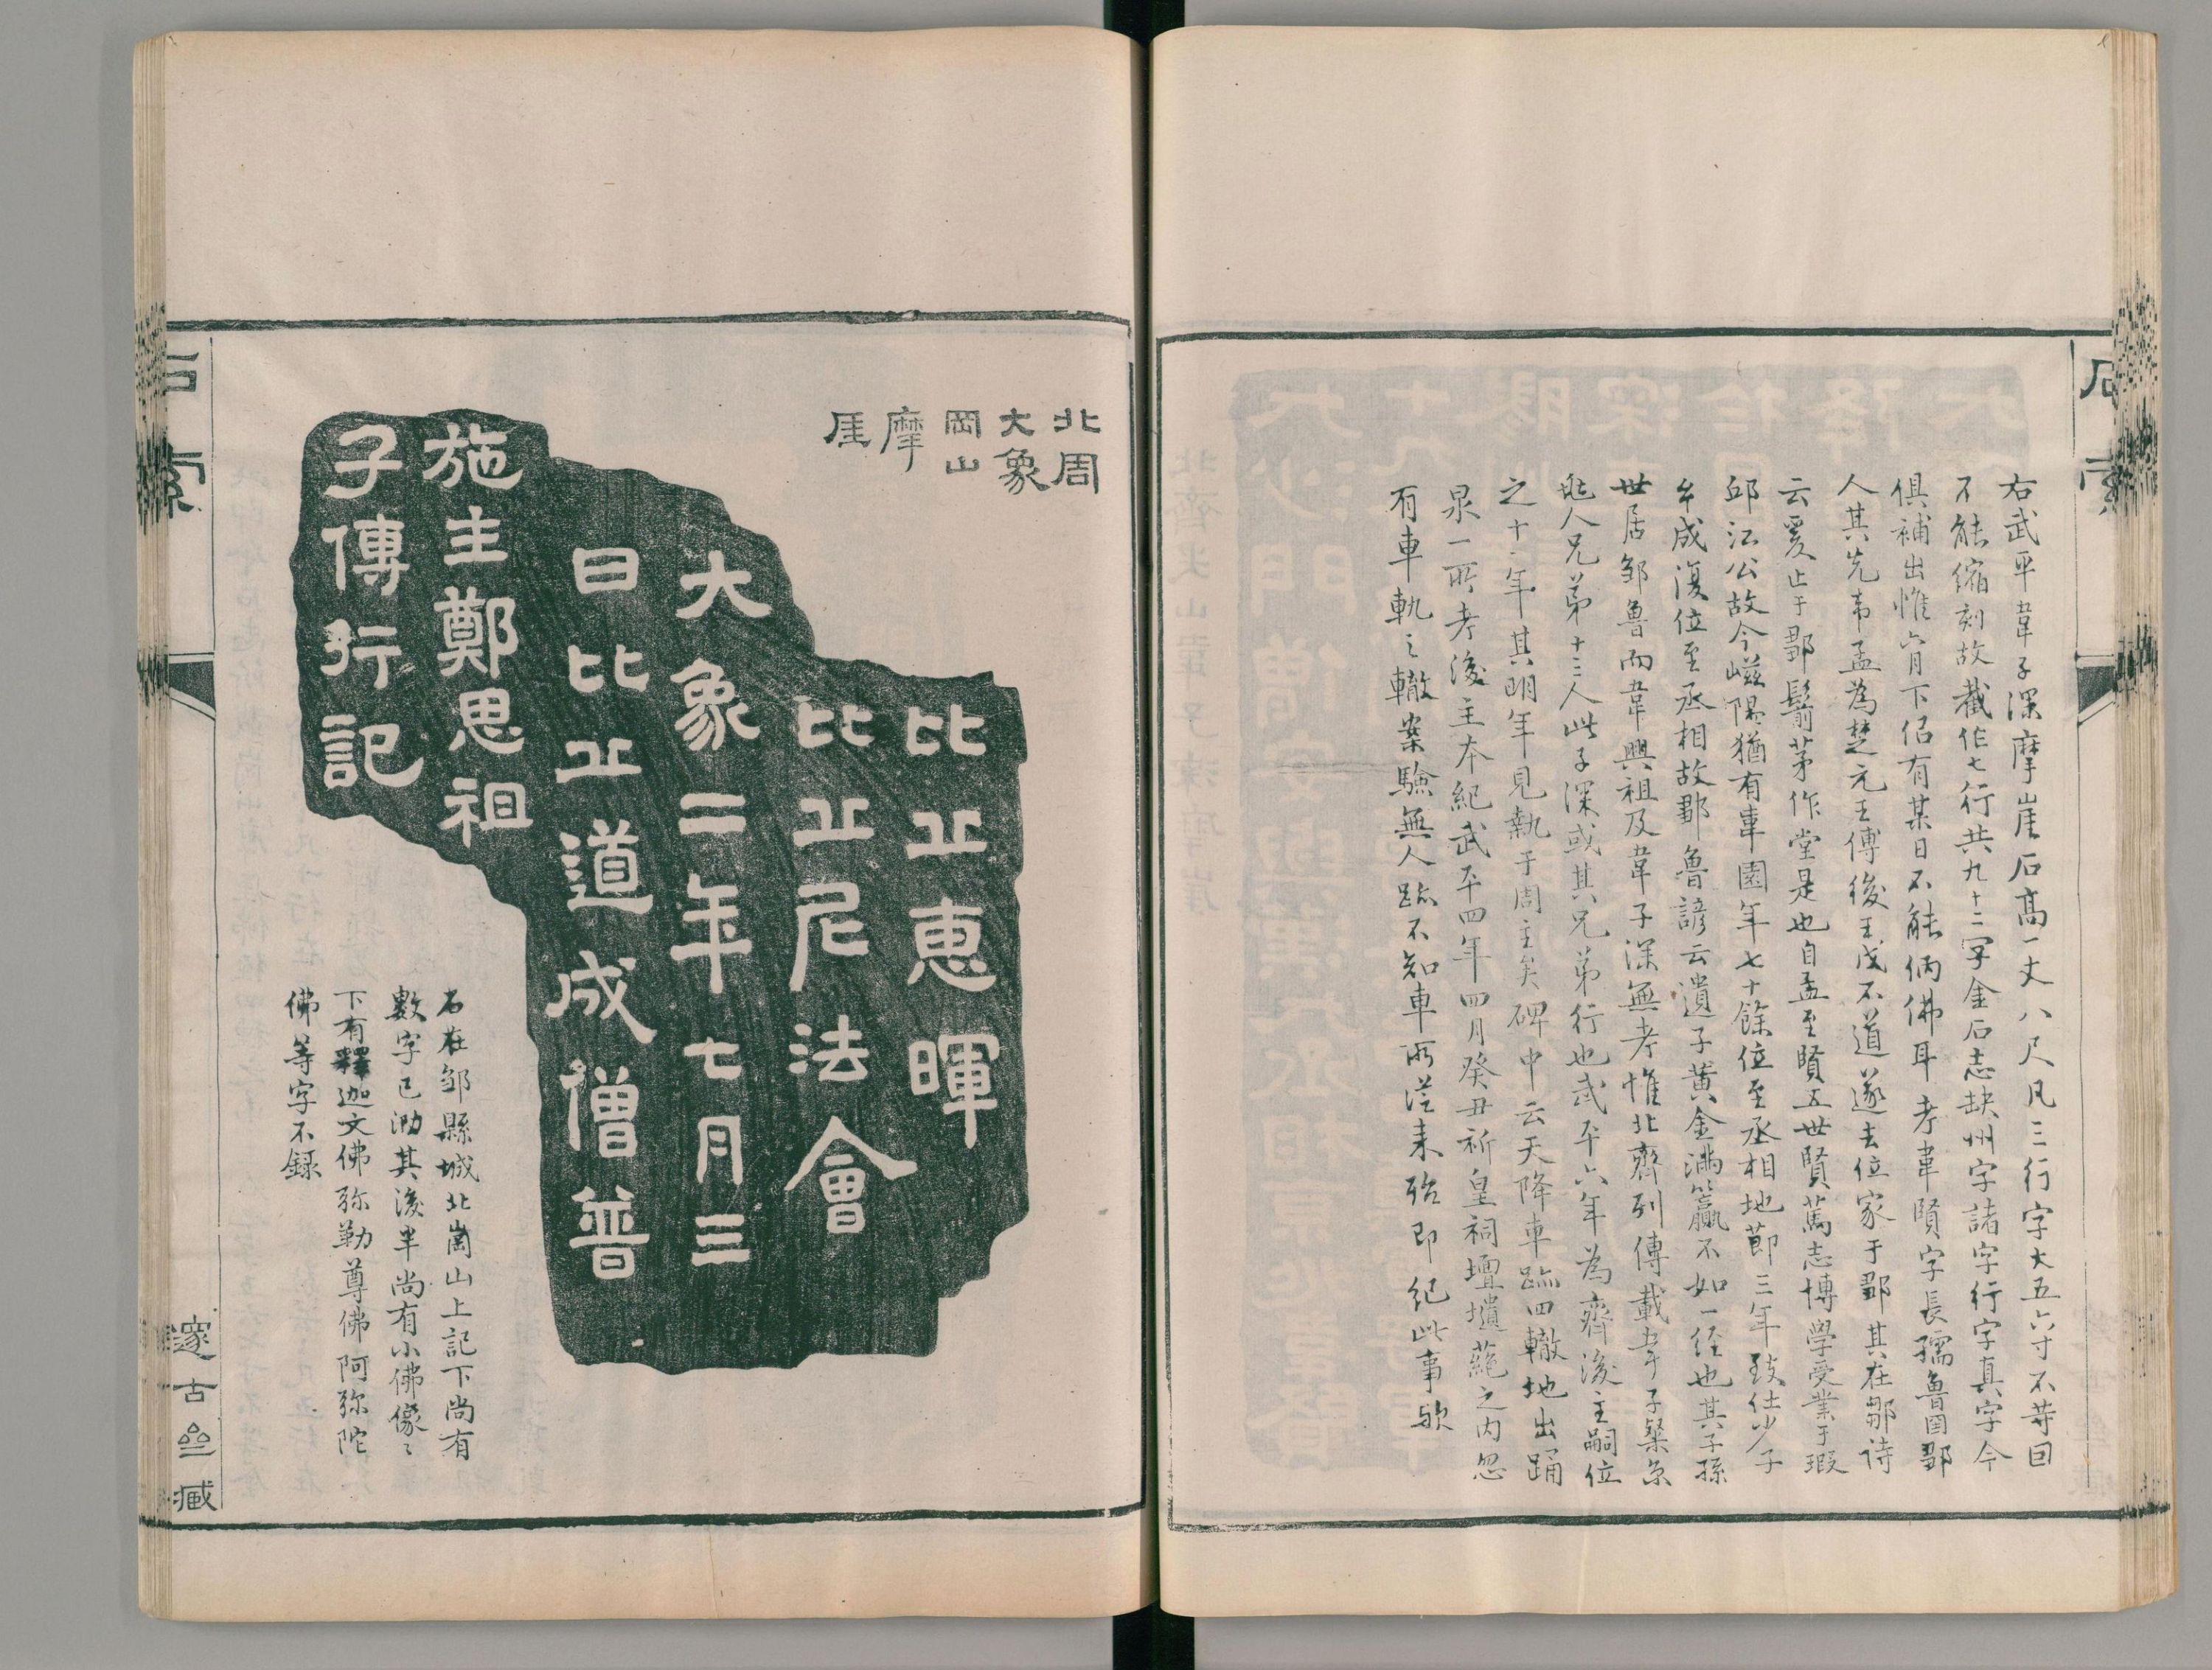 石索
右武平韋子深摩崖石高一丈八尺凡三行字大五六寸不苐回
不能縮刻故截作七行共九十二字金石志缺州字諸字行字真字今
俱補出惟六月下佀有某日不能俩佛耳考韋賢字長孺魯國鄒
人其先韦孟為楚元王傅後王戊不道遂去位家于鄒其在鄒诗
云爰止于鄒鬋茅作堂是也自孟至賢五世賢篤志博學受業于瑕
邱江公故今嵫陽猶有韋園年七十餘位至丞相地莭三年致仕少子
成復位至丞相故鄒魯諺云遺子黄金满籯不如一经也其子孫
世居邹魯而韋興祖及韋子深無考惟北齊列傳載韋子粲京
兆人兄弟十三人此子深或其兄弟行也武平六年為齊後主嗣位
之十一年其明年見執于周主矣碑中云天降車跡四轍地出踊
泉一所考後主本紀武平四年四月癸丑祈皇祠壇壝蕝之内忽
有車軌之轍案驗無人跡不知車所從来殆即纪此事歟
北周
大象
岡山
摩
厓
比丘惠暉
比丘尼法會
大象二年七月三
日比丘道成僧普
施主鄭思祖
子傳行記
右在邹縣城北崗山上記下尚有
數字已泐其後半尚有小佛像〻
下有釋迦文佛弥勒尊佛阿弥陀
佛等字不録
石索
邃古亝臧